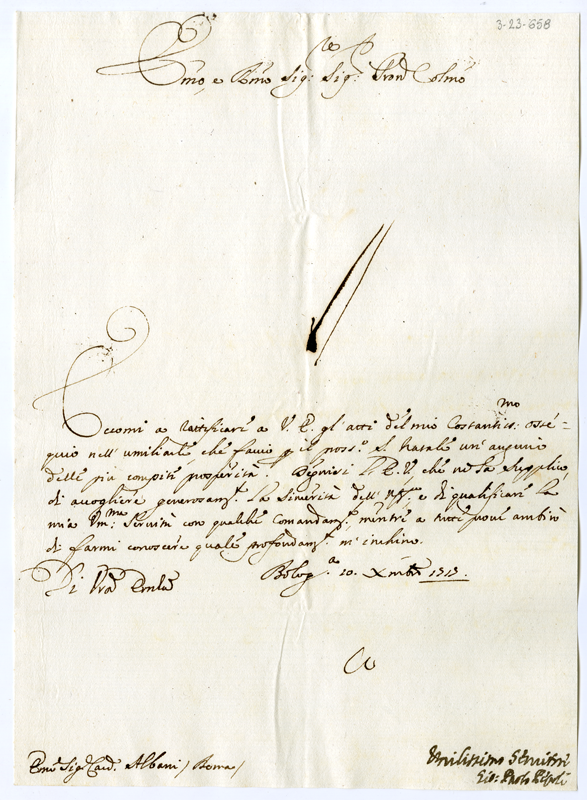 3-23-658
Emo, e Rmo Sig: Sig: Pron Colmo
Eccomi a rattificare a V. E. gl'atti del mio Costantiss:mo osse=
quio nell'umiliarle, che faccio p il poss:o S. Natale un'augurio
delle più compite prosperità. Degnisi l'E. V. che ne la supplico,
di accogliere generosam.te la sincerità dell' e di qualificare la
mia Um:ma Servitù con qualche Comandam.to mentre a tutte prove ambirò
di farmi conoscere quale profondam.te m'inchino.
Di Vra Emza Bolog.a 10. Xmbre 1717.
Emo Sig: Card. Albani / Roma /
Umilissimo Servitore
Gio: Paolo Pepoli